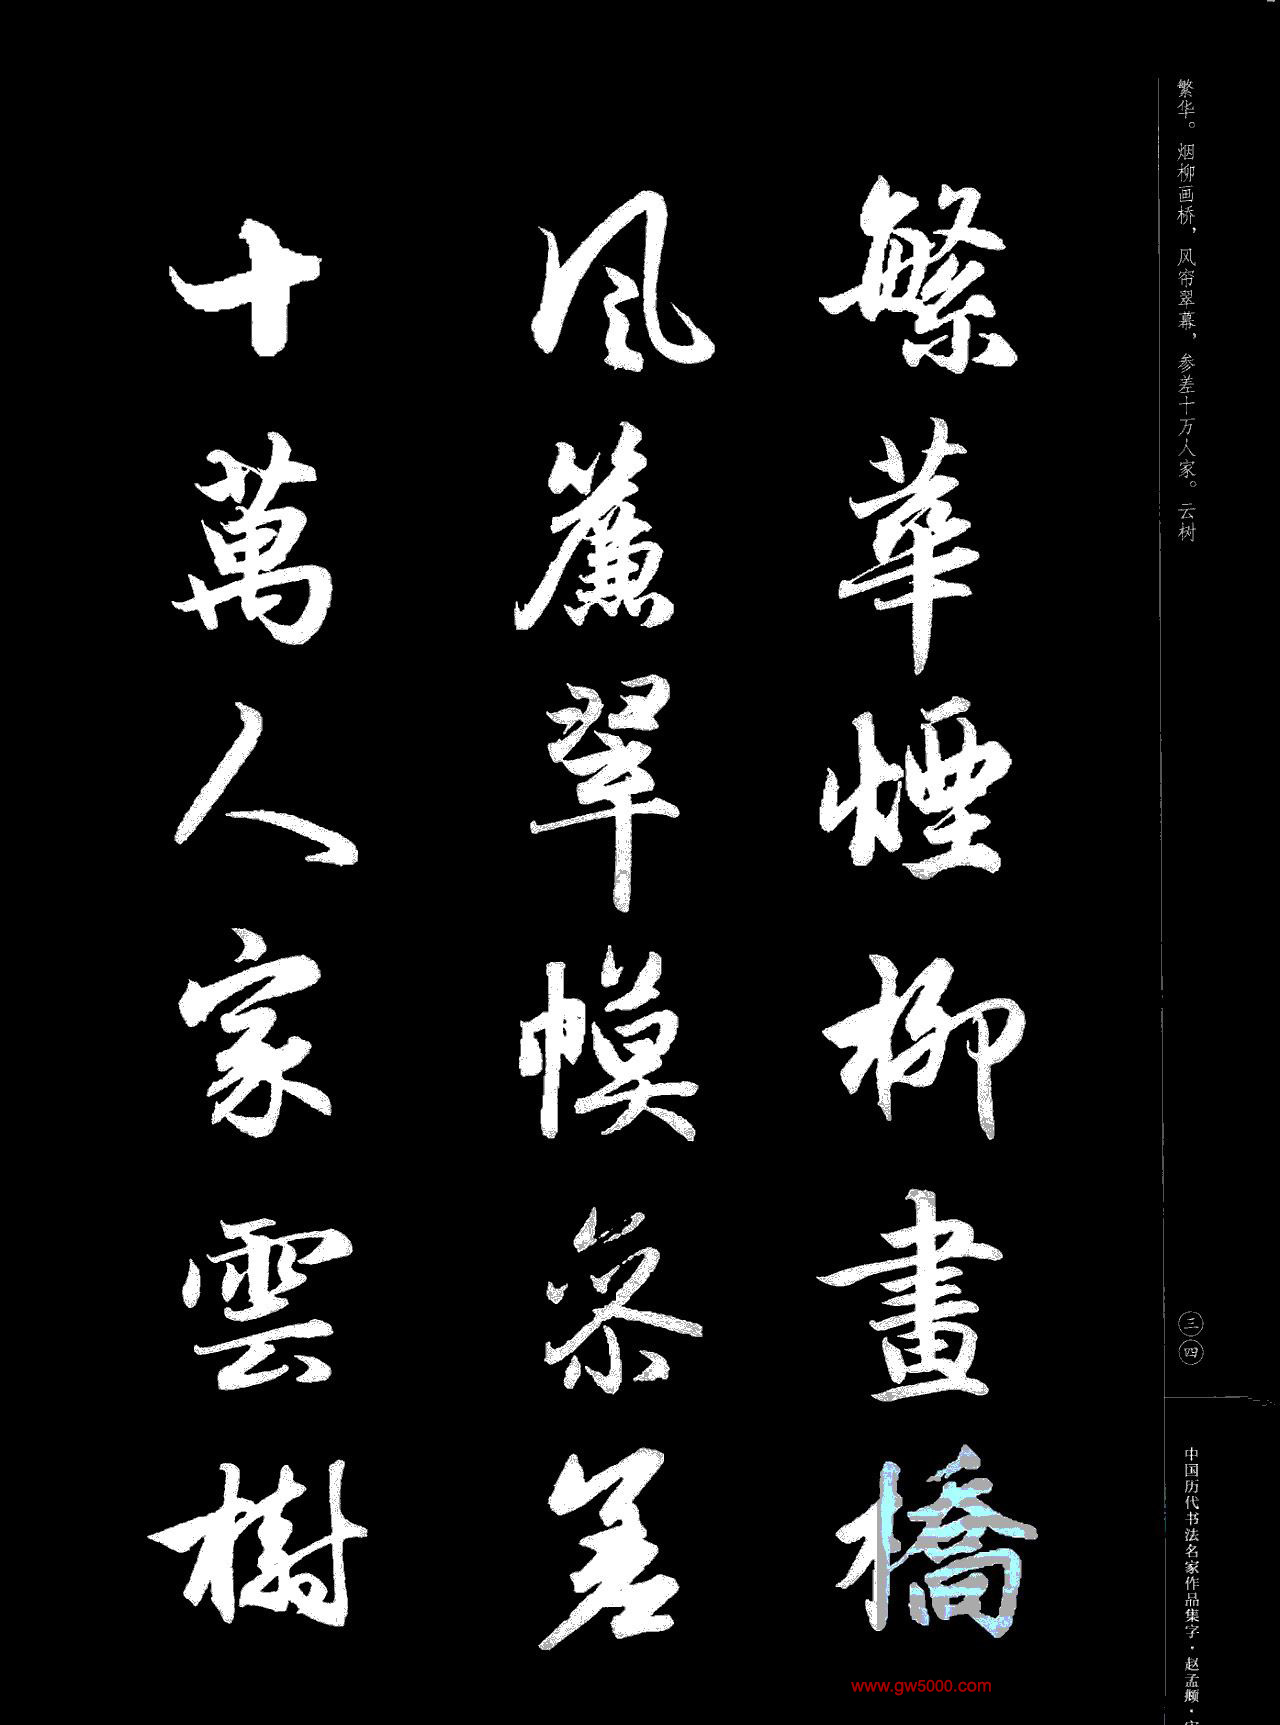 繁华。烟柳画桥，风帘翠幕，参差十万人家。云树
繁華煙柳畫橋
風簾翠幙參差
十萬人家雲樹
三四
中国历代书法名家作品集字·赵孟頫·
www.gw5000.com